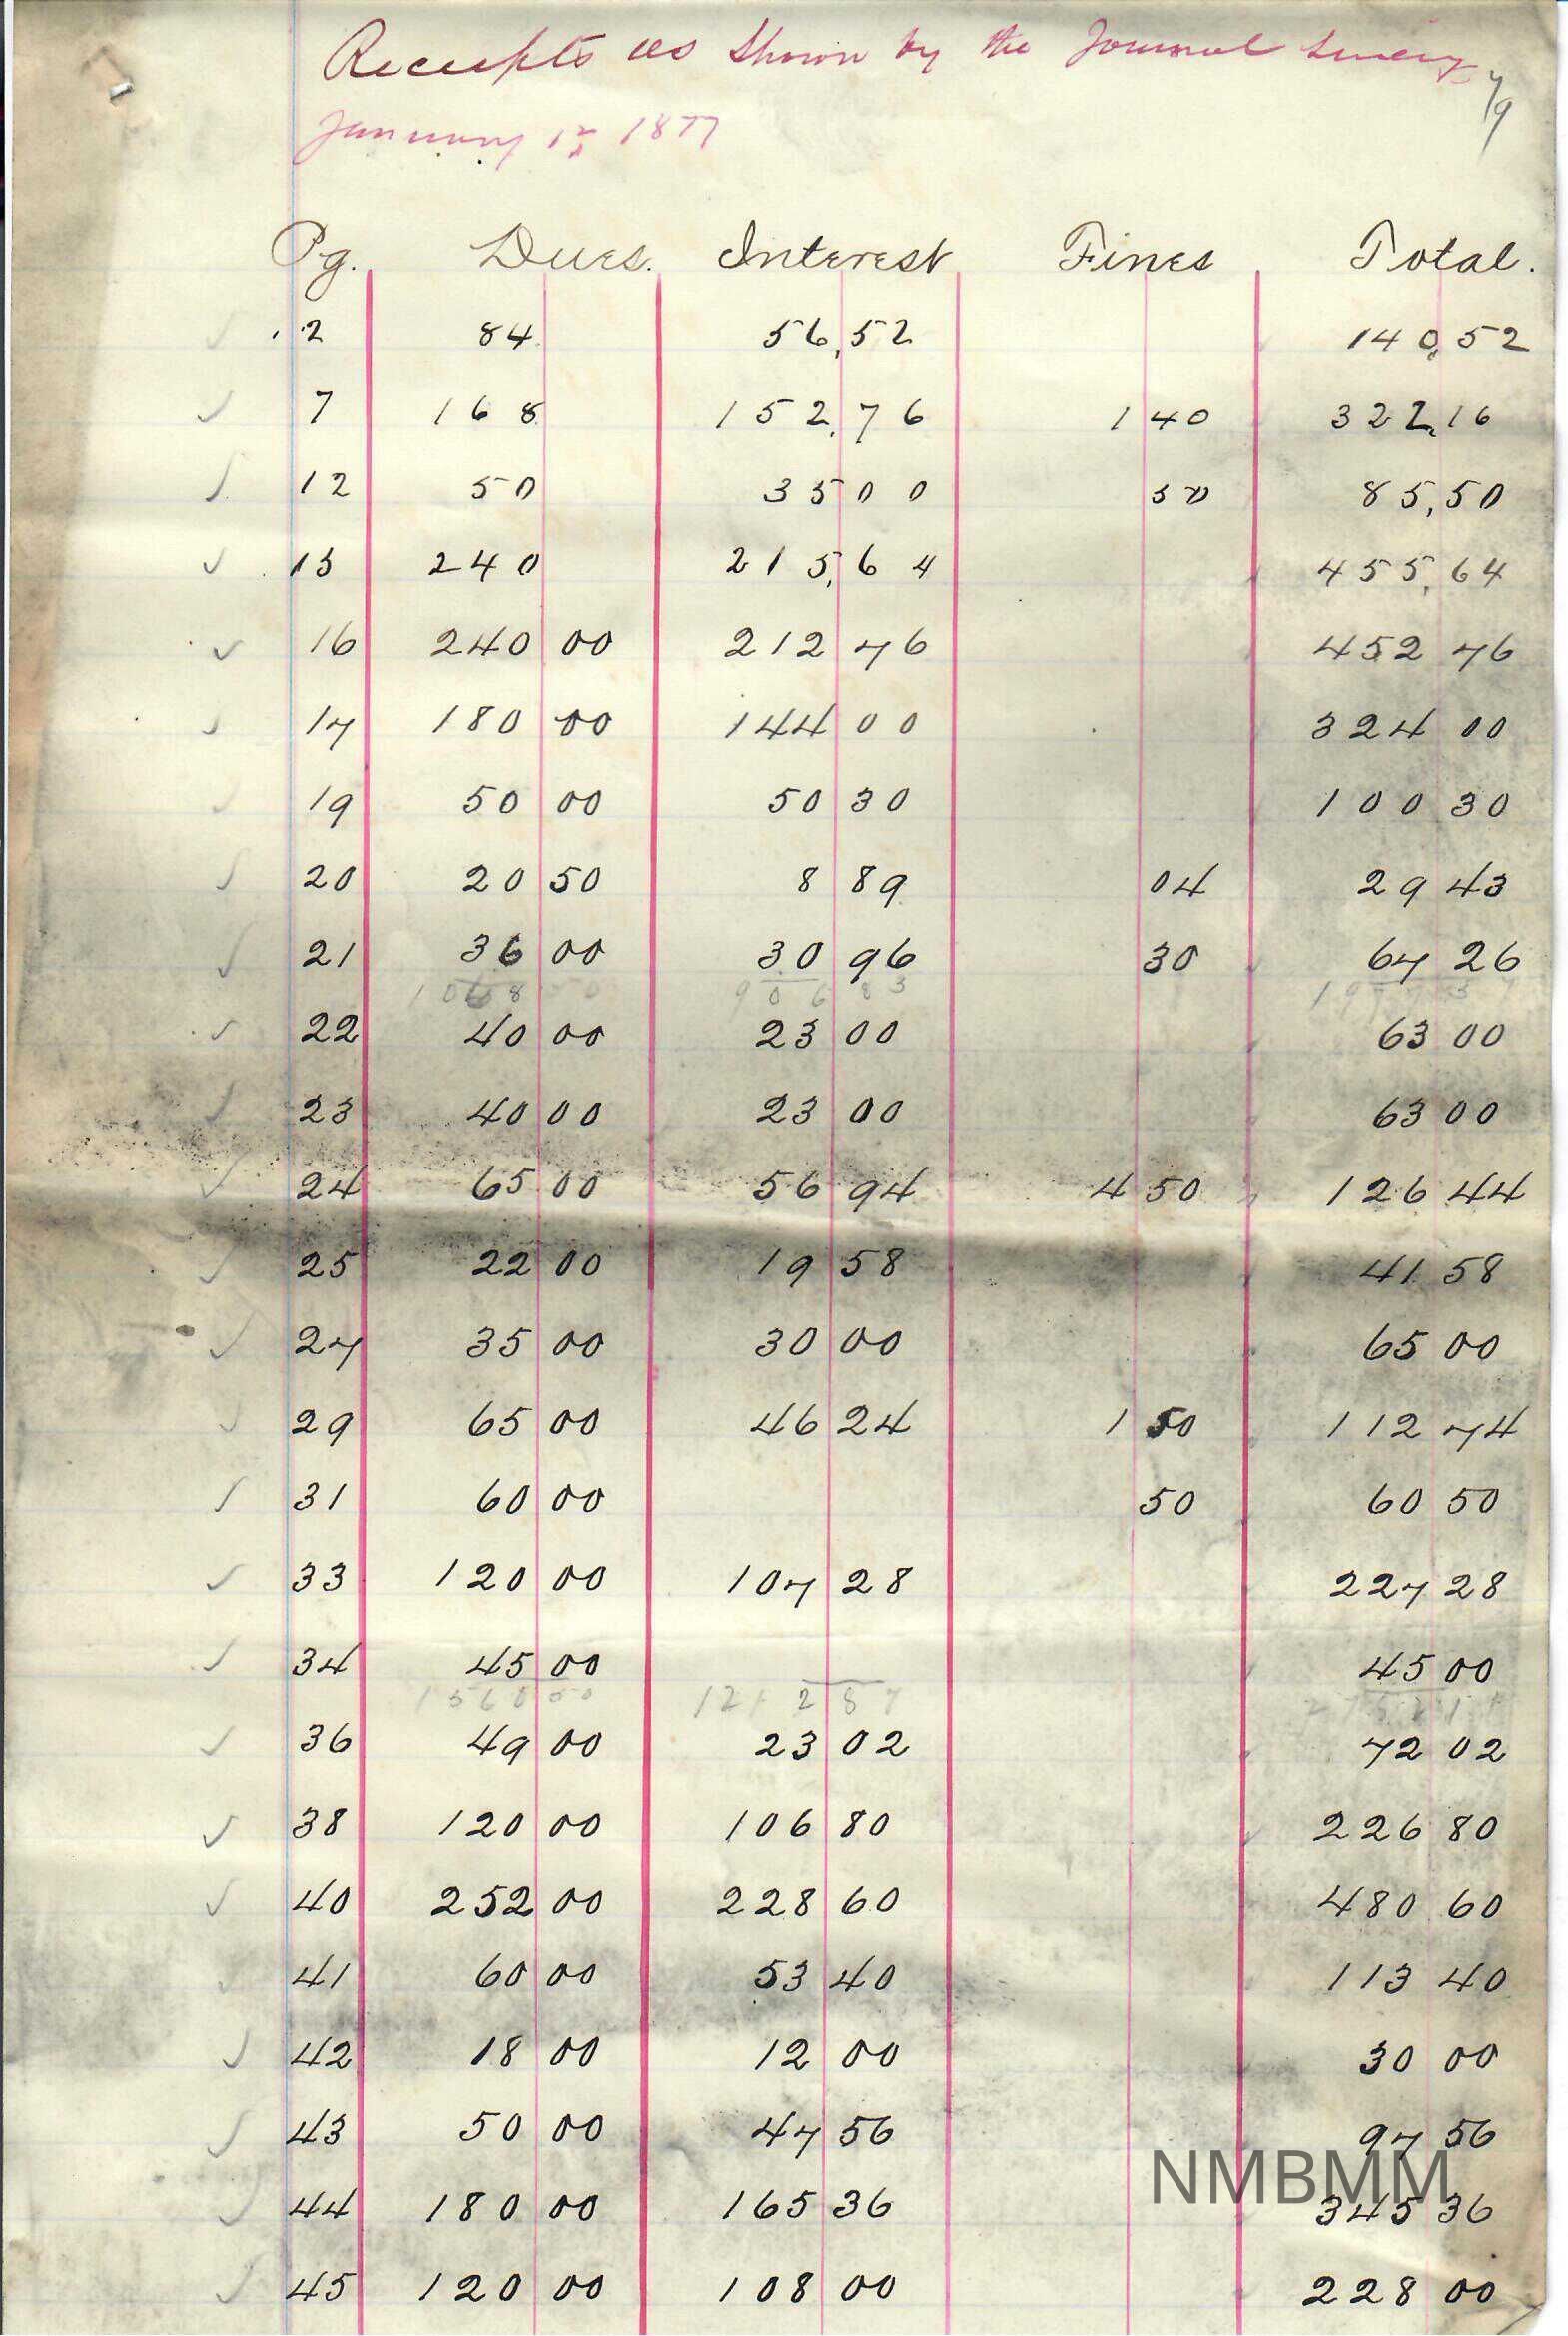 Receipts as Shown by the Journal
7/9
January 1st 1877
Pg. Dues. Interest Fines Total.
2 84 56,52 140,52
7 168 152,76 1 40 322,16
12 50 35 00 50 85,50
15 240 215,64 455,64
16 240 00 212 76 452 76
17 180 00 144 00 324 00
19 50 00 50 30 100 30
20 20 50 8 89 04 29 43
21 36 00 30 96 30 67 26
1068 50 906 83
22 40 00 23 00 63 00
23 40 00 23 00 63 00
24 65 00 56 94 4 50 126 44
25 22 00 19 58 41 58
27 35 00 30 00 65 00
29 65 00 46 24 1 50 112 74
31 60 00 50 60 50
33 120 00 107 28 227 28
34 45 00 45 00
1212 87
36 49 00 23 02 72 02
38 120 00 106 80 226 80
40 252 00 228 60 480 60
41 60 00 53 40 113 40
42 18 00 12 00 30 00
43 50 00 47 56 97 56
NMBMM
44 180 00 165 36 345 36
45 120 00 108 00 228 00